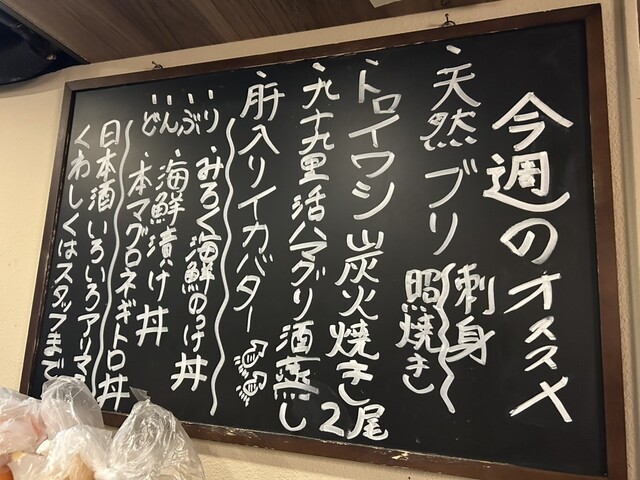 今週のオススメ
・天然ブリ 刺身
照焼き
・トロイワシ炭火焼き2尾
・九十九里活ハマグリ酒蒸し
・肝入りイカバター
どんぶり
・みろく海鮮のっけ丼
・海鮮漬け丼
・本マグロネギトロ丼
日本酒いろいろアリマ
くわしくはスタッフまで